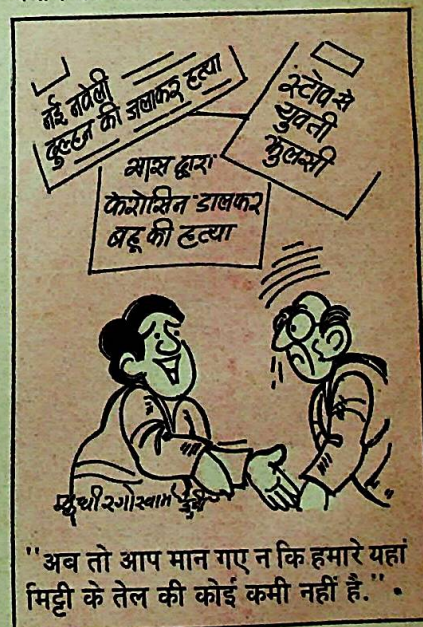 नई नवेली
दुल्हन की जलाकर हत्या
स्टोव से
युवती
झुलसी
सास द्वारा
केरोसिन डालकर
बहू की हत्या
"अब तो आप मान गए न कि हमारे यहां
मिट्टी के तेल की कोई कमी नहीं है." •